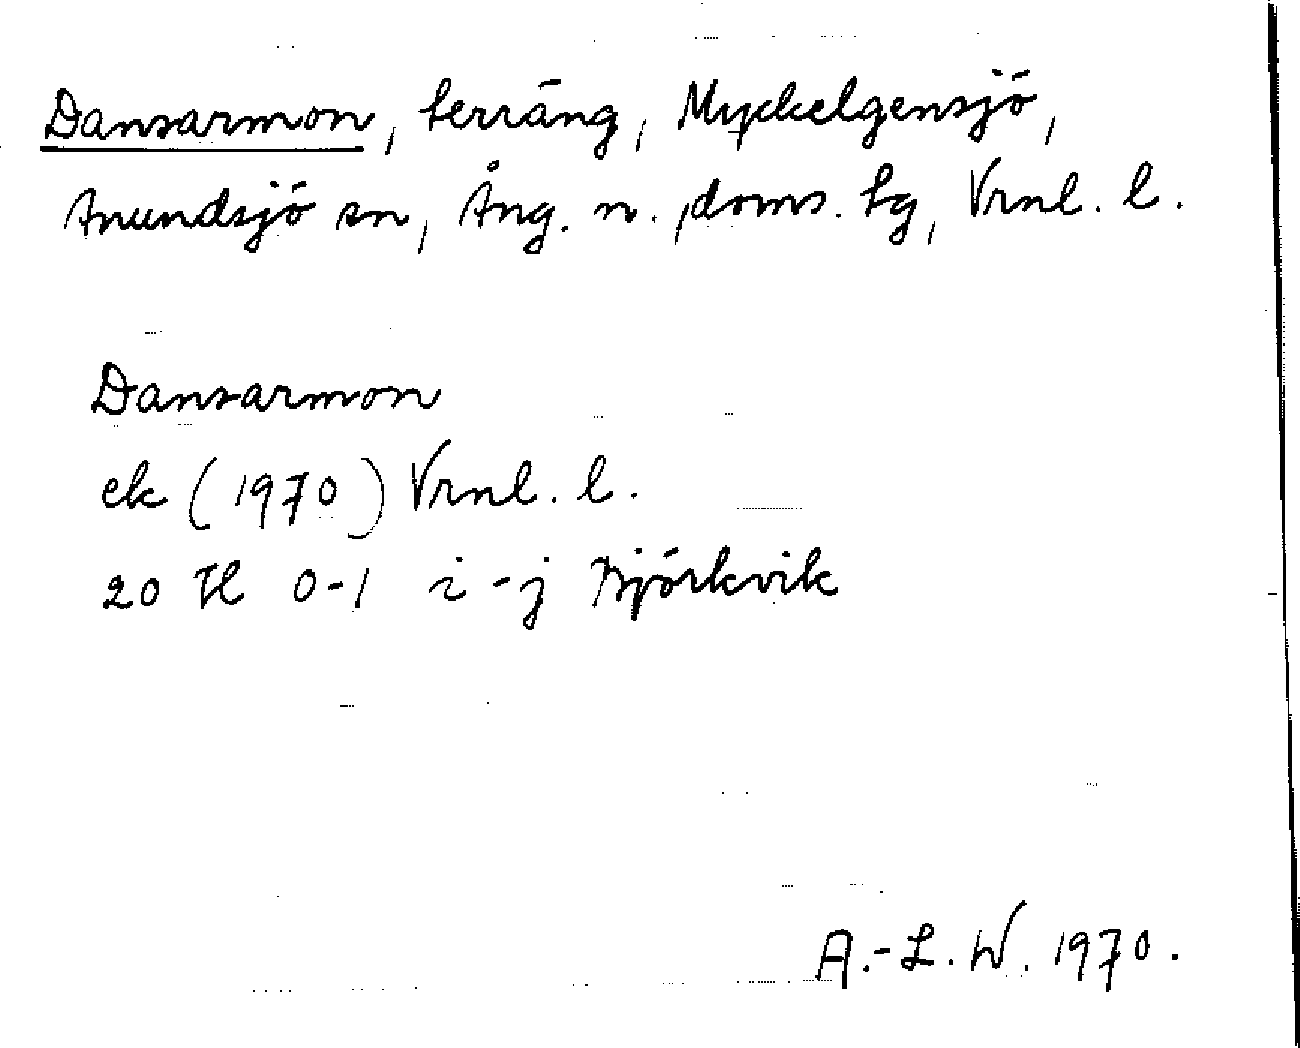 Dansarmon, terräng, Myckelgensjö,
Anundsjö sn, Ång. n. doms. tg, Vrnl. l.
Dansarmon
ek (1970) Vrnl. l.
20 H 0-1 i-j Björkvik
A.-L. W. 1970.